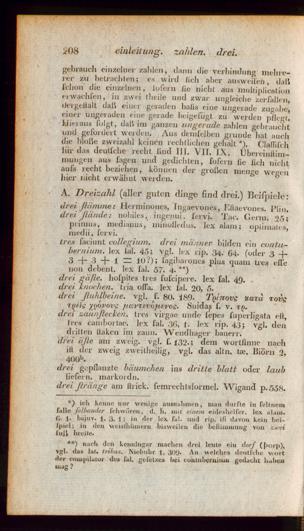 208 einleitung. zahlen. drei.
gebrauch einzelner zahlen, dann die verbindung mehre-
rer zu betrachten; es wird sich aber ausweisen, daß
schon die einzelnen, sofern sie nicht aus multiplication
erwachsen, in zwei theile und zwar ungleiche zerfallen,
dergestalt daß einer geraden basis eine ungerade zugabe,
einer ungeraden eine gerade beigefügt zu werden pflegt.
Hieraus folgt, daß im ganzen ungerade zahlen gebraucht
und gefordert werden. Aus demselben grunde hat auch
die bloße zweizahl keinen rechtlichen gehalt *). Classisch
für das deutsche recht sind III. VII. IX. Übereinstim-
mungen aus sagen und gedichten, sofern sie sich nicht
aufs recht beziehen, können der großen menge wegen
hier nicht erwähnt werden.
A. Dreizahl (aller guten dinge sind drei.) Beispiele:
drei stämme: Herminones, Ingaevones, Istaevones. Plin.
drei stände: nobiles, ingenui, servi. Tac. Germ. 25;
primus, medianus, minofledus. lex alam; optimates,
medii, servi.
tres faciunt collegium. drei männer bilden ein contu-
bernium. lex sal. 45; vgl. lex rip. 34. 64. (oder 3 +
3 + 3 + 1 = 10?); sagibarones plus quam tres esse
non debent. lex sal. 57, 4. **)
drei gäste. hospites tres suscipere. lex sal. 49.
drei knochen. tria ossa. lex sal. 20, 5.
drei stuhlbeine. vgl. f. 80. 189.
Suidas s. v.
drei zaunstecken. tres virgae unde sepes superligata est,
tres cambortae. lex sal. 36, 1. lex rip. 43; vgl. den
dritten staken im zaun. Wendhager bauerr.
drei äste am zweig. vgl. f. 132.; dem wortsinne nach
ist der zweig zweitheilig, vgl. das altn. tæ. Biörn 2,
400b.
drei gepflanzte bäumchen ins dritte blatt oder laub
liefern. markordn.
drei stränge am strick. femrechtsformel. Wigand p. 558.
*) ich kenne nur wenige ausnahmen, man durfte in seltnem
falle selbander schwören, d. h. mit einem eideshelfer. lex alam.
6. 1. bajuv. 1. 3. 1; in der lex sal. und rip. ist davon kein bei-
spiel; in den weisthümern bisweilen die bestimmung von zwei
fuß breite.
**) nach den kenningar machen drei leute ein dorf (þorp),
vgl. das lat. tribus. Niebuhr 1, 309. An welches deutsche wort
der compilator des sal. gesetzes bei contubernium gedacht haben
mag?